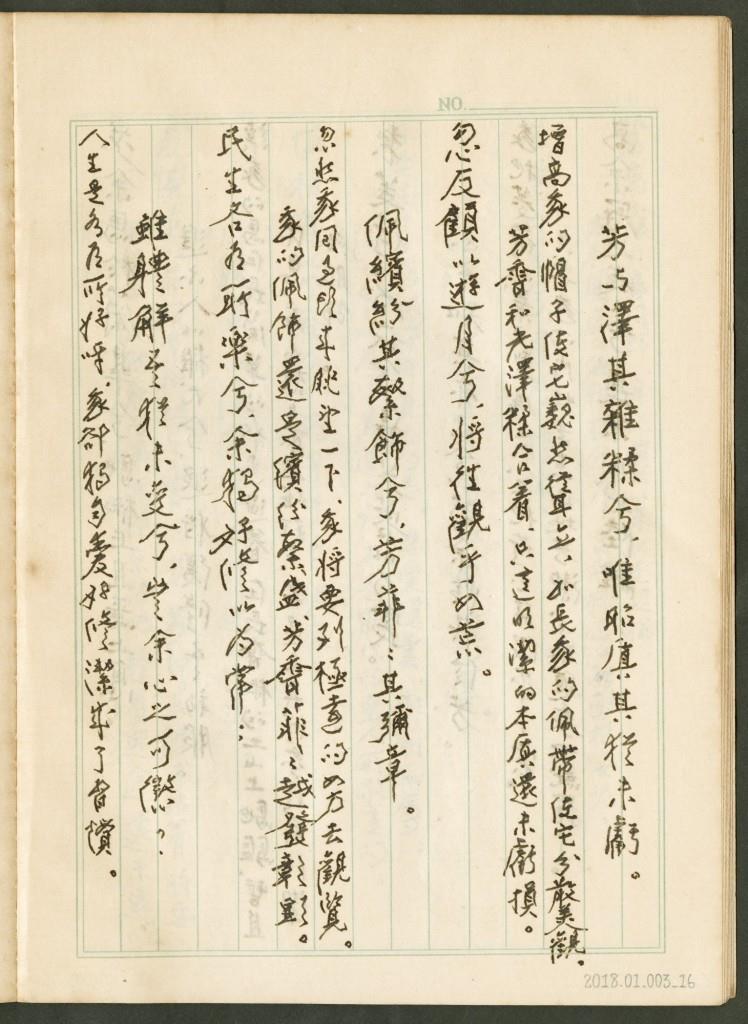 NO.
芳与澤其雜糅兮、唯昭质其猶未虧。
增高家的帽子使它巍然聳立、加長家的佩帶使它分散美觀。
芳香和光澤糅合着、只這明潔的本质還未虧損。
忽反顧以遊目兮、将往觀乎四荒。
佩繽紛其繁飾兮、芳菲〻其彌章。
忽然家回過頭来眺望一下、家将要到極遠的四方去觀覽。
家的佩飾還是繽紛繁盛、芳香菲〻越發章顯。
民生各有所樂兮、余獨好修以為常；
雖體解吾猶未变兮、豈余心之可懲？
人生是各有所好呀、家卻獨自愛好修潔成了習慣。
2018.01.003_16